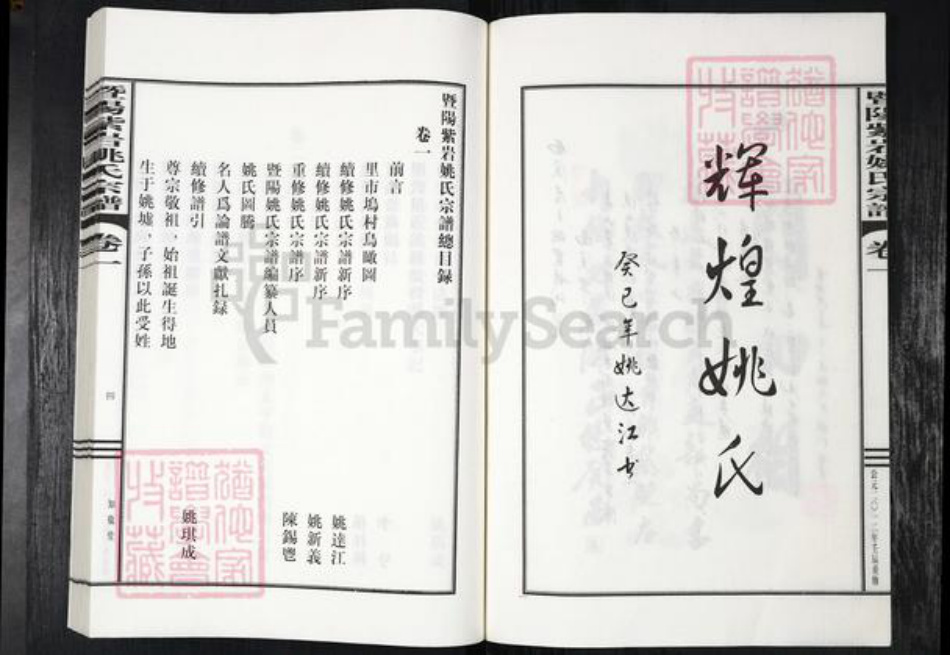 輝煌姚氏
癸巳年姚达江书
暨陽紫岩姚氏宗譜
卷一
暨陽紫岩姚氏宗譜總目録
卷一
前言
里市塢村鳥瞰圖
續修姚氏宗譜新序 姚達江
續修姚氏宗譜新序 姚新義
重修姚氏宗譜序 陳錫鬯
暨陽姚氏宗譜編纂人員
姚氏圖騰
名人爲論譜文獻扎録
續修譜引 姚琪成
尊宗敬祖，始祖誕生得地
生于姚墟，子孫以此受姓
暨陽紫岩姚氏宗譜
卷一
四
FamilySearch